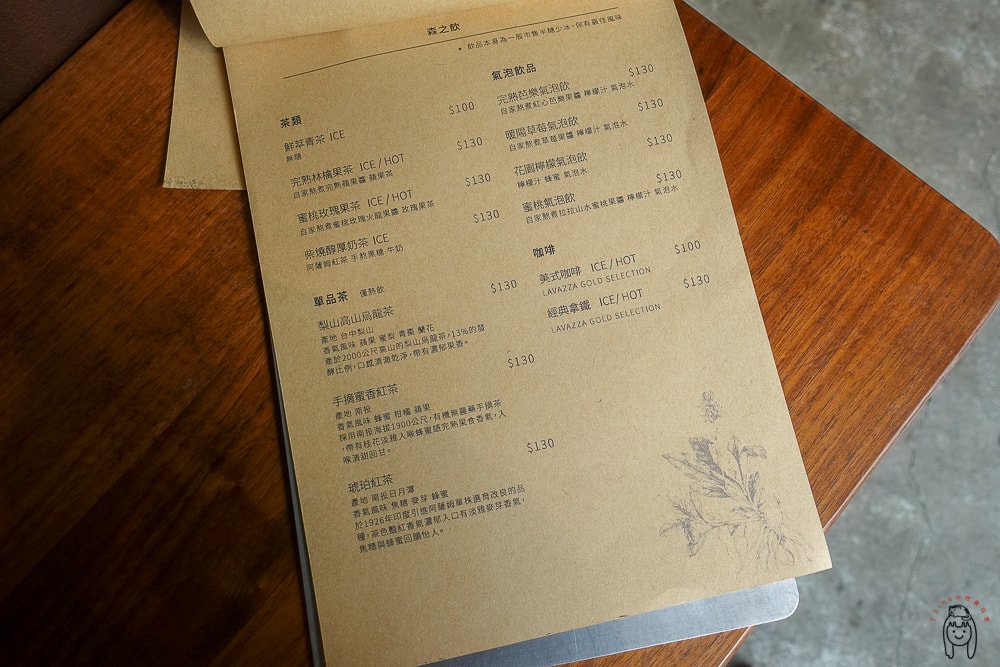 森之飲
• 飲品本身為一般市售半糖少冰,保有最佳風味
茶類
鮮萃青茶 ICE $100
無糖
完熟林檎果茶 ICE / HOT $130
自家熬煮完熟蘋果醬 蘋果茶
蜜桃玫瑰果茶 ICE / HOT $130
自家熬煮蜜桃玫瑰火龍果醬 玫瑰果茶
柴燒醇厚奶茶 ICE $130
阿薩姆紅茶 手熬黑糖 牛奶
單品茶 僅熱飲
梨山高山烏龍茶 $130
產地 台中梨山
香氣風味 蘋果 蜜梨 青棗 蘭花
產於2000公尺高山的梨山烏龍茶,13%的發
酵比例,口感清澈乾淨,帶有濃郁果香。
手摘蜜香紅茶 $130
產地 南投
香氣風味 蜂蜜 柑橘 蘋果
採用南投海拔1900公尺,有機無農藥手摘茶
,帶有桂花淡雅入喉蜂蜜語完熟果食香氣,入
喉清甜回甘。
琥珀紅茶 $130
產地 南投日月潭
香氣風味 焦糖 麥芽 蜂蜜
於1926年印度引進阿薩姆單株選育改良的品
種,茶色豔紅香氣濃郁入口有淡雅麥芽香氣,
焦糖與蜂蜜回韻怡人。
氣泡飲品
完熟芭樂氣泡飲 $130
自家熬煮紅心芭樂果醬 檸檬汁 氣泡水
暖陽草莓氣泡飲 $130
自家熬煮草莓果醬 檸檬汁 氣泡水
花園檸檬氣泡飲 $130
檸檬汁 蜂蜜 氣泡水
蜜桃氣泡飲 $130
自家熬煮拉拉山水蜜桃果醬 檸檬汁 氣泡水
咖啡
美式咖啡 ICE / HOT $100
LAVAZZA GOLD SELECTION
經典拿鐵 ICE / HOT $130
LAVAZZA GOLD SELECTION